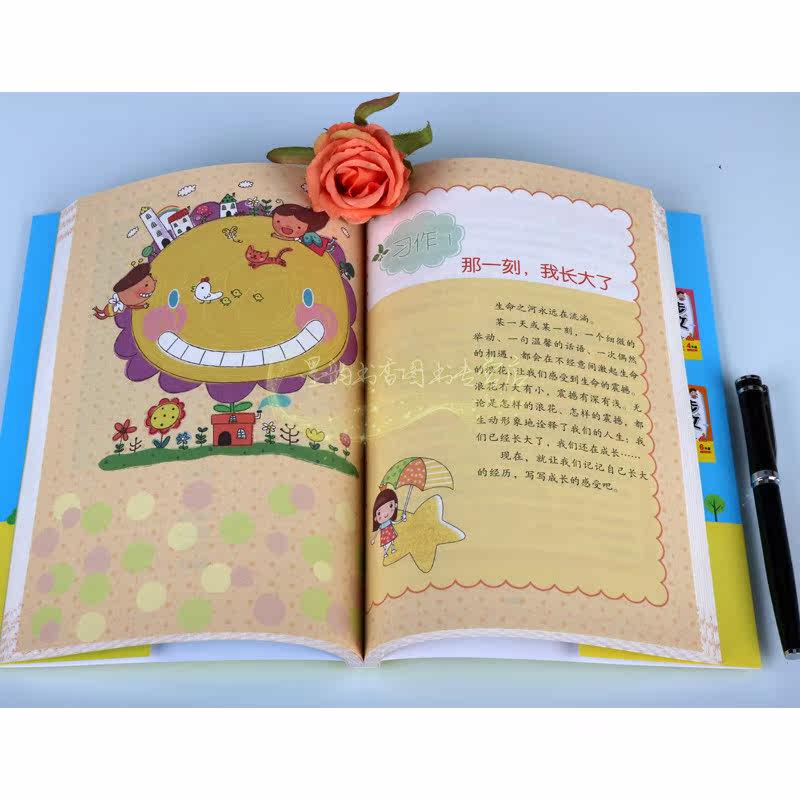 习作1
那一刻，我长大了
生命之河永远在流淌。
某一天或某一刻，一个细微的
举动、一句温馨的话语、一次偶然
的相遇，都会在不经意间激起生命
的浪花，让我们感受到生命的震撼。
浪花有大有小，震撼有深有浅。无
论是怎样的浪花、怎样的震撼，都
生动形象地诠释了我们的人生：我
们已经长大了，我们还在成长……
现在，就让我们记记自己长大
的经历，写写成长的感受吧。